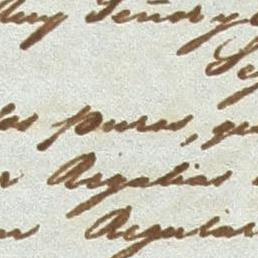 Muy Señor y
Se
las puras, que
Regalias
Regular